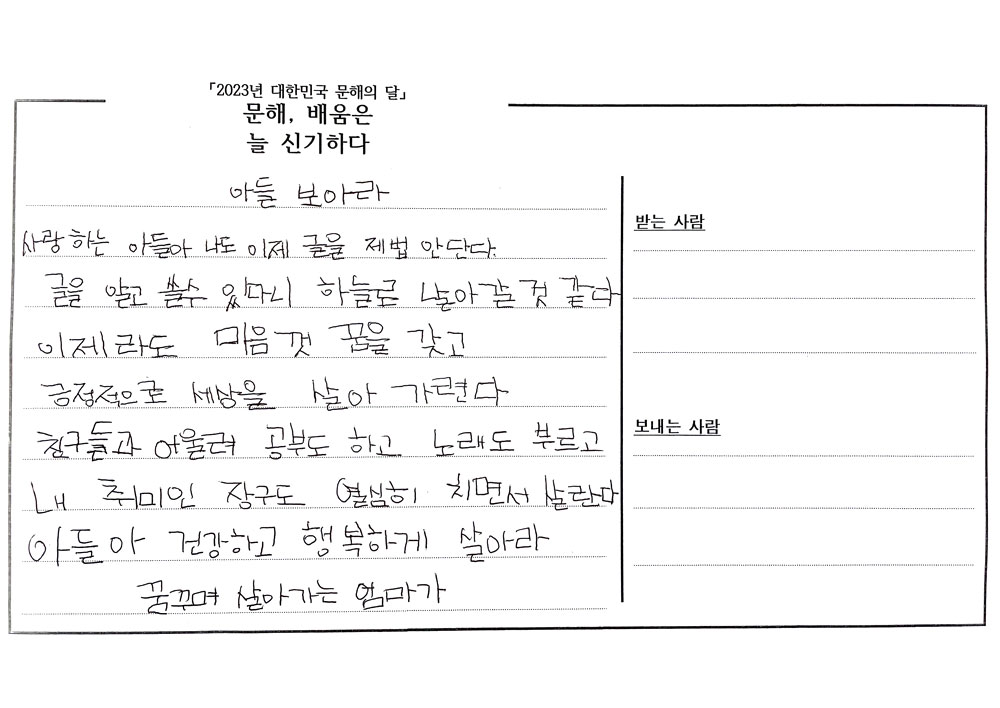 「2023년 대한민국 문해의 달」
문해, 배움은
늘 신기하다
아들 보아라
사랑하는 아들아 나도 이제 글을 제법 안단다.
글을 알고 쓸수 있다니 하늘로 날아갈 것 같다
이제라도 마음껏 꿈을 갖고
긍정적으로 세상을 살아 가련다
친구들과 어울려 공부도 하고 노래도 부르고
내 취미인 장구도 열심히 치면서 살란다
아들아 건강하고 행복하게 살아라
꿈꾸며 살아가는 엄마가
받는 사람
보내는 사람